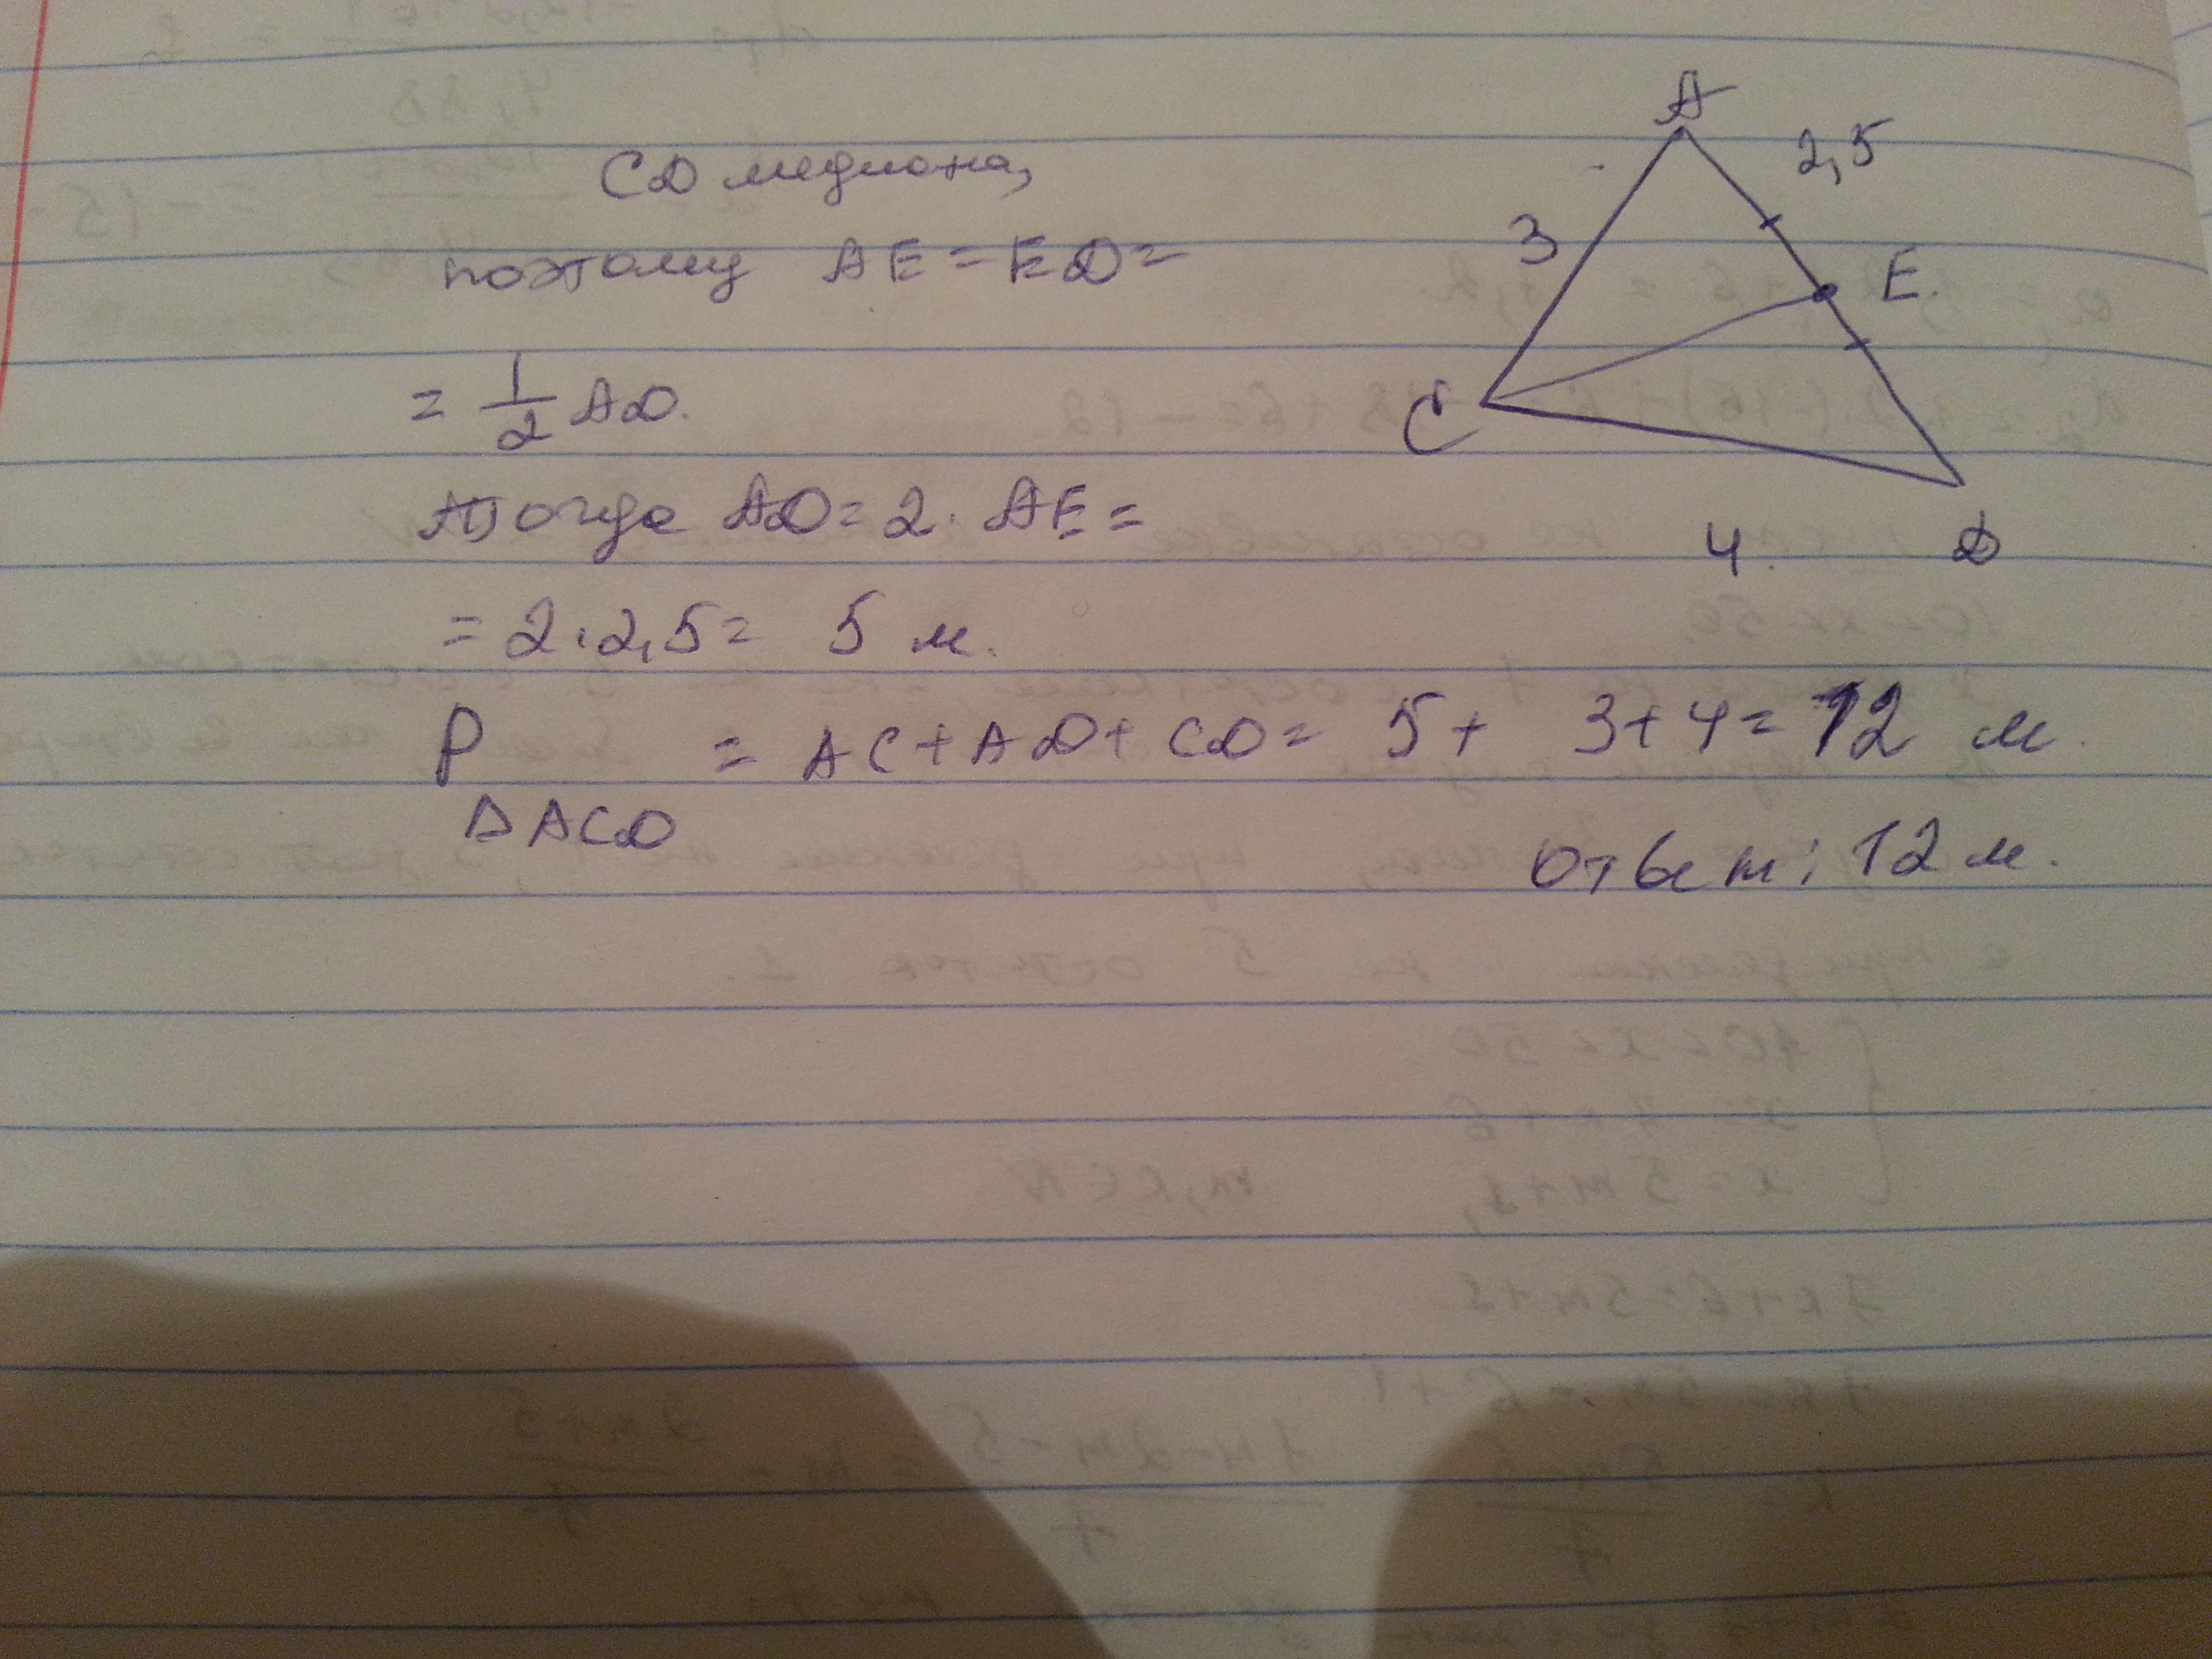 CD медиана,
поэтому AE = ED =
= 1/2 AD.
Тогда AD = 2 · AE =
= 2 · 2,5 = 5 м.
P ΔACD = AC + AD + CD = 5 + 3 + 4 = 12 м.
Ответ: 12 м.
A
2,5
3
E.
C
4.
D